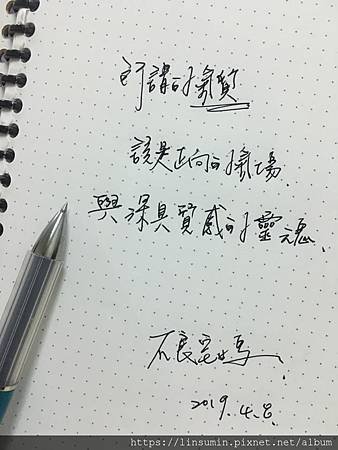 所謂的氣質
該是正向的氣場
與深具質感的靈魂
不良宅媽
2019.4.8
https://linsumin.pixnet.net/album